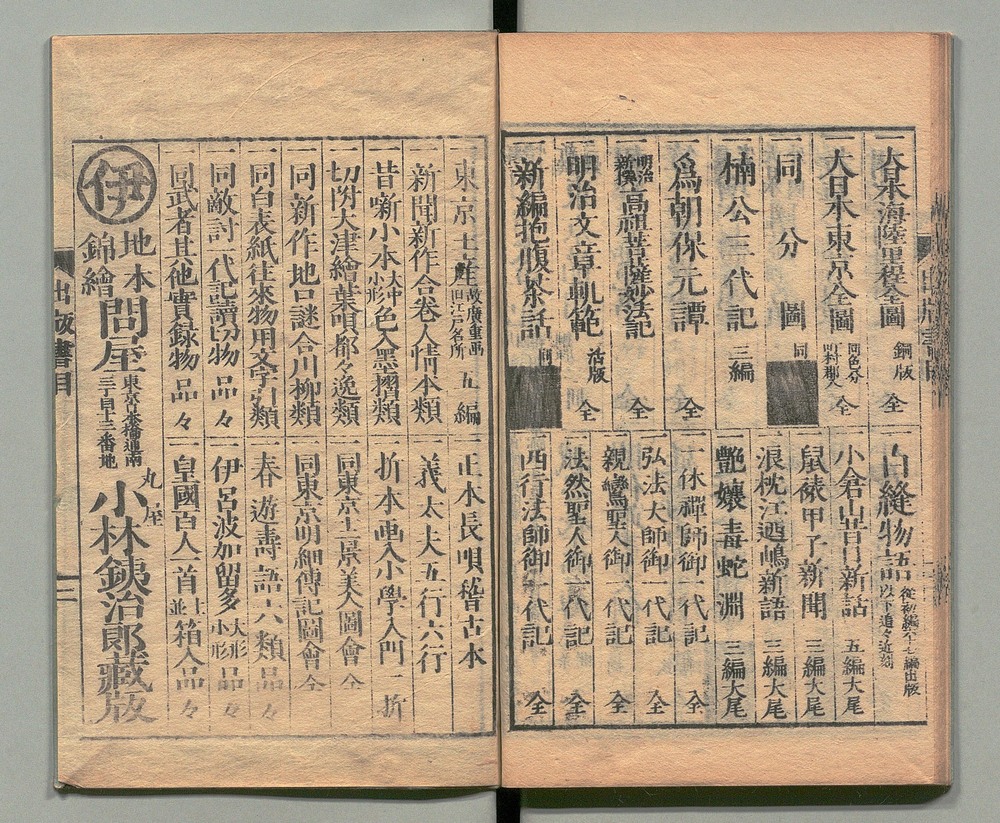 一大日本海陸里程全圖 銅版 全
一大日本東京全圖 全
一同分圖 同
一楠公三代記 三編
一爲朝保元譚 全
一明治新撰高祖菩薩妙法記 全
一明治文章軌範 活版 全
一新編抱腹茶話 同
一白縫物語
一小倉山昔日新話 五編大尾
一鼠𧝒甲子新聞 三編大尾
一浪枕江迺嶋新語 三編大尾
一艶孃毒蛇淵 三編大尾
一一休禪師御一代記 全
一弘法大師御一代記 全
一親鸞聖人御一代記 全
一法然聖人御一代記 全
一西行法師御一代記 全
出版書目
一東京土産 故廣重画 旧江戸名所 五編
一新聞新作合巻人情本類
一昔噺小本 大中小形 色入墨摺類
一切附大津繪葉唄都々逸類
一同新作地口謎合川柳類
一同白表紙往來物用文字引類
一同敵討一代記讀切物 品々
一同武者其他實録物 品々
一正本長唄稽古本
一義太夫五行六行
一折本画入小學入門 一折
一同東京十二景美人圖會 全
一同東京明細傳記圖會 全
一春遊壽語六類 品々
一伊呂波加留多 大形小形 品々
一皇國百人一首 並上 箱入品々
伊
地本
錦繪
問屋
東京本橋通南
三丁目十三番地
丸屋
小林銕治郎藏版
出版書目